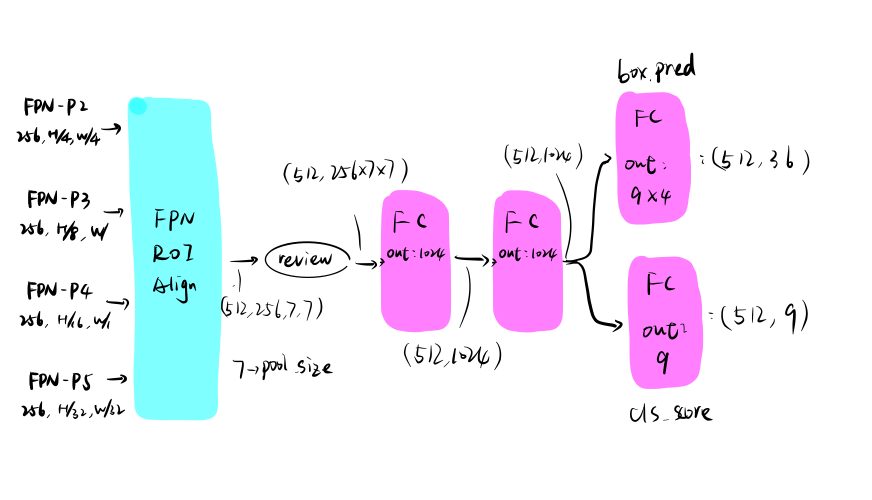 FPN-P2
256, H/4, W/4
FPN-P3
256, H/8, W/
FPN-P4
256, H/16, W/1
FPN-P5
256, H/32, W/32
FPN
ROI
Align
(512, 256, 7, 7)
7→pool_size
review
(512, 256×7×7)
FC
out:1024
(512, 1024)
FC
out:1024
(512, 1024)
box_pred
FC
out:
9×4
:(512, 36)
FC
out:
9
:(512, 9)
cls_score